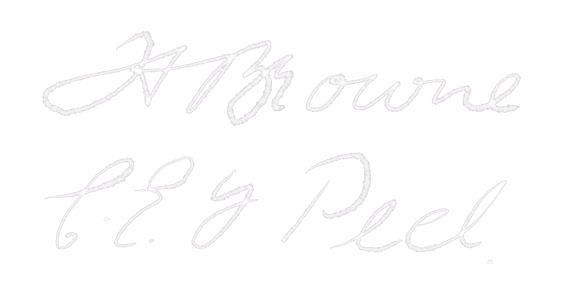 H Browne
C. E. Y Peel.